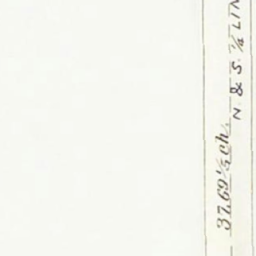 37.69½ ch.
N. & S. ¼ LIN